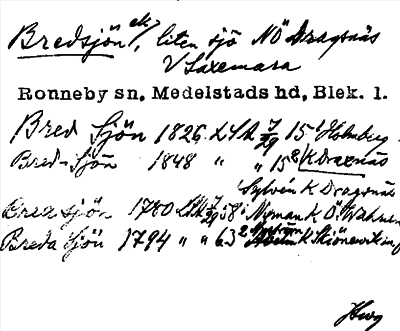 Bredsjön ek/, liten sjö NÖ Dragsnäs
V Saxemara
Ronneby sn, Medelstads hd, Blek. l.
Bred Sjön 1826 LSA 7/29 15 Holmberg
Bred-Sjön 1848 " " 15 K Draxnäs
Sylvén K Dragsnäs
Bredsjön 1780 LSA 7/29 58 Nyman K Ö.
Breda Sjön 1794 " " 63